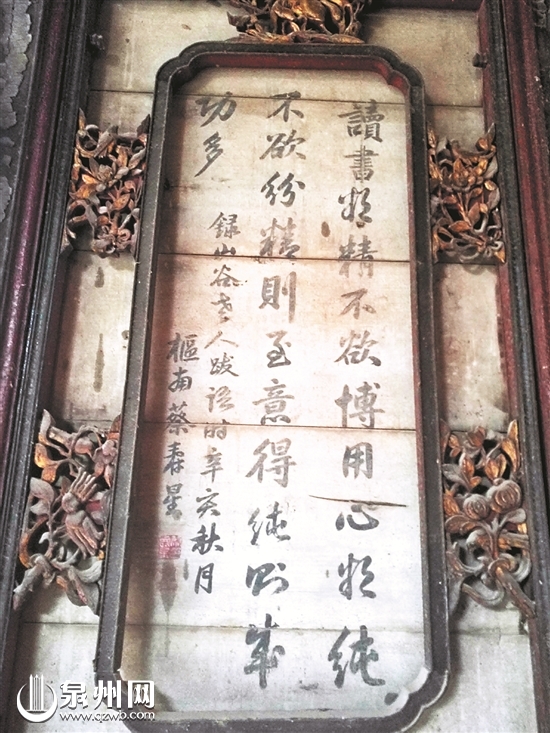 讀書須精不欲博用心須純
不欲紛精則至意得純則成
功多
録山谷老人跋語時辛亥秋月
樞南蔡壽星
泉州网
www.qzwb.com